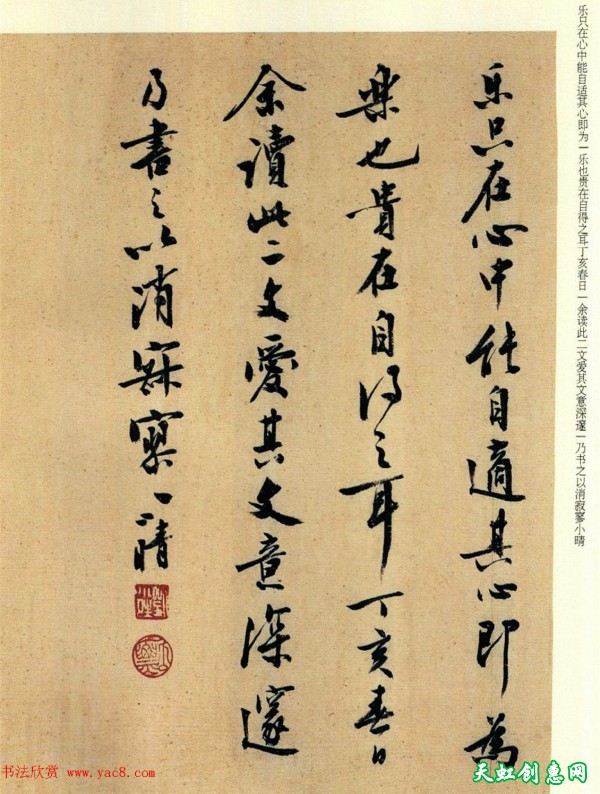 乐只在心中能自适其心即为一乐也贵在自得之耳丁亥春日一余读此二文爱其文意深邃一乃书之以消寂寥小晴
乐只在心中能自適其心即為
樂也貴在自得之耳丁亥春日
余讀此二文愛其文意深邃
乃書之以消寂寥小晴
书法欣赏 www.yac8.com
天虹创惠网